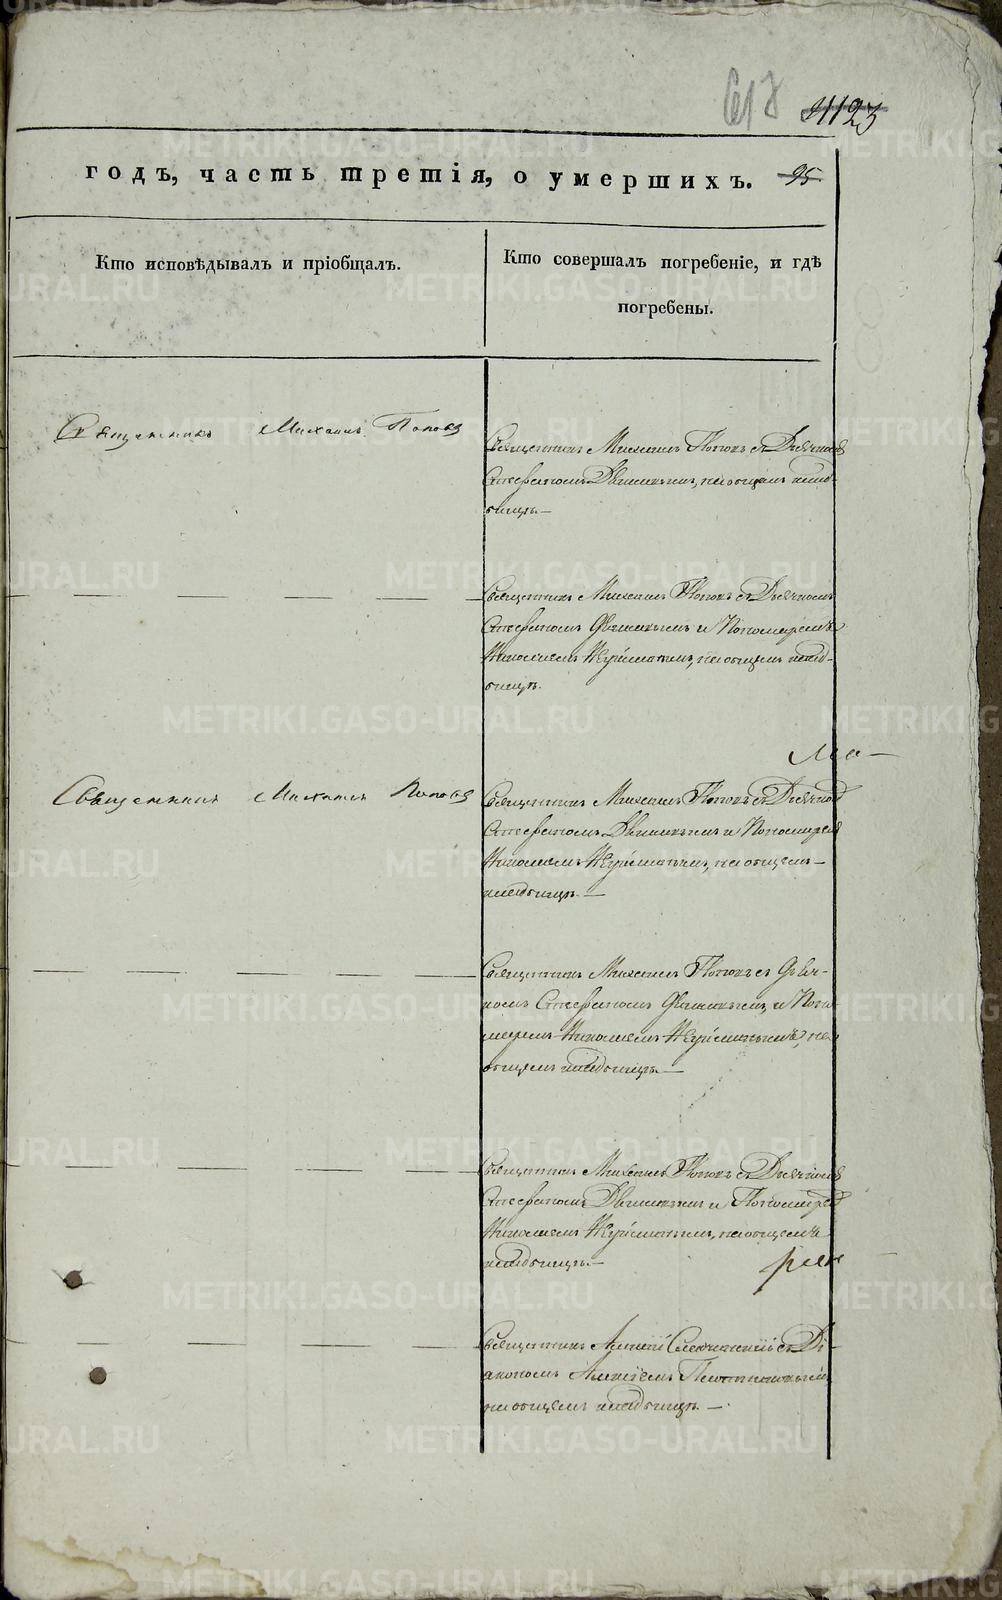 617
1123
годъ, часть третія, о умершихъ. 95
Кто исповѣдывалъ и пріобщалъ.
Кто совершалъ погребеніе, и гдѣ
погребены.
Священникъ Михаилъ Поповъ
Священникъ Михаилъ Поповъ съ Дьячкомъ
Стефаномъ на общемъ клад-
бищѣ.—
Священникъ Михаилъ Поповъ съ Дьячкомъ
Стефаномъ и Пономаремъ
Николаемъ на общемъ клад-
бищѣ.
Священникъ Михаилъ Поповъ
Священникъ Михаилъ Поповъ съ Дьячком
Стефаномъ и Пономарем
Николаемъ на общемъ—
кладбищѣ.—
Священникъ Михаилъ Поповъ съ Дьяч-
комъ Стефаномъ и Поно-
маремъ Николаемъ на
общемъ кладбищѣ.—
Священникъ Михаилъ Поповъ съ Дьячкомъ
Стефаномъ и Пономарем
Николаемъ на общемъ
кладбищѣ.—
Священникъ съ Ді-
акономъ Алексѣемъ
на общемъ кладбищѣ.—
METRIKI.GASO-URAL.RU